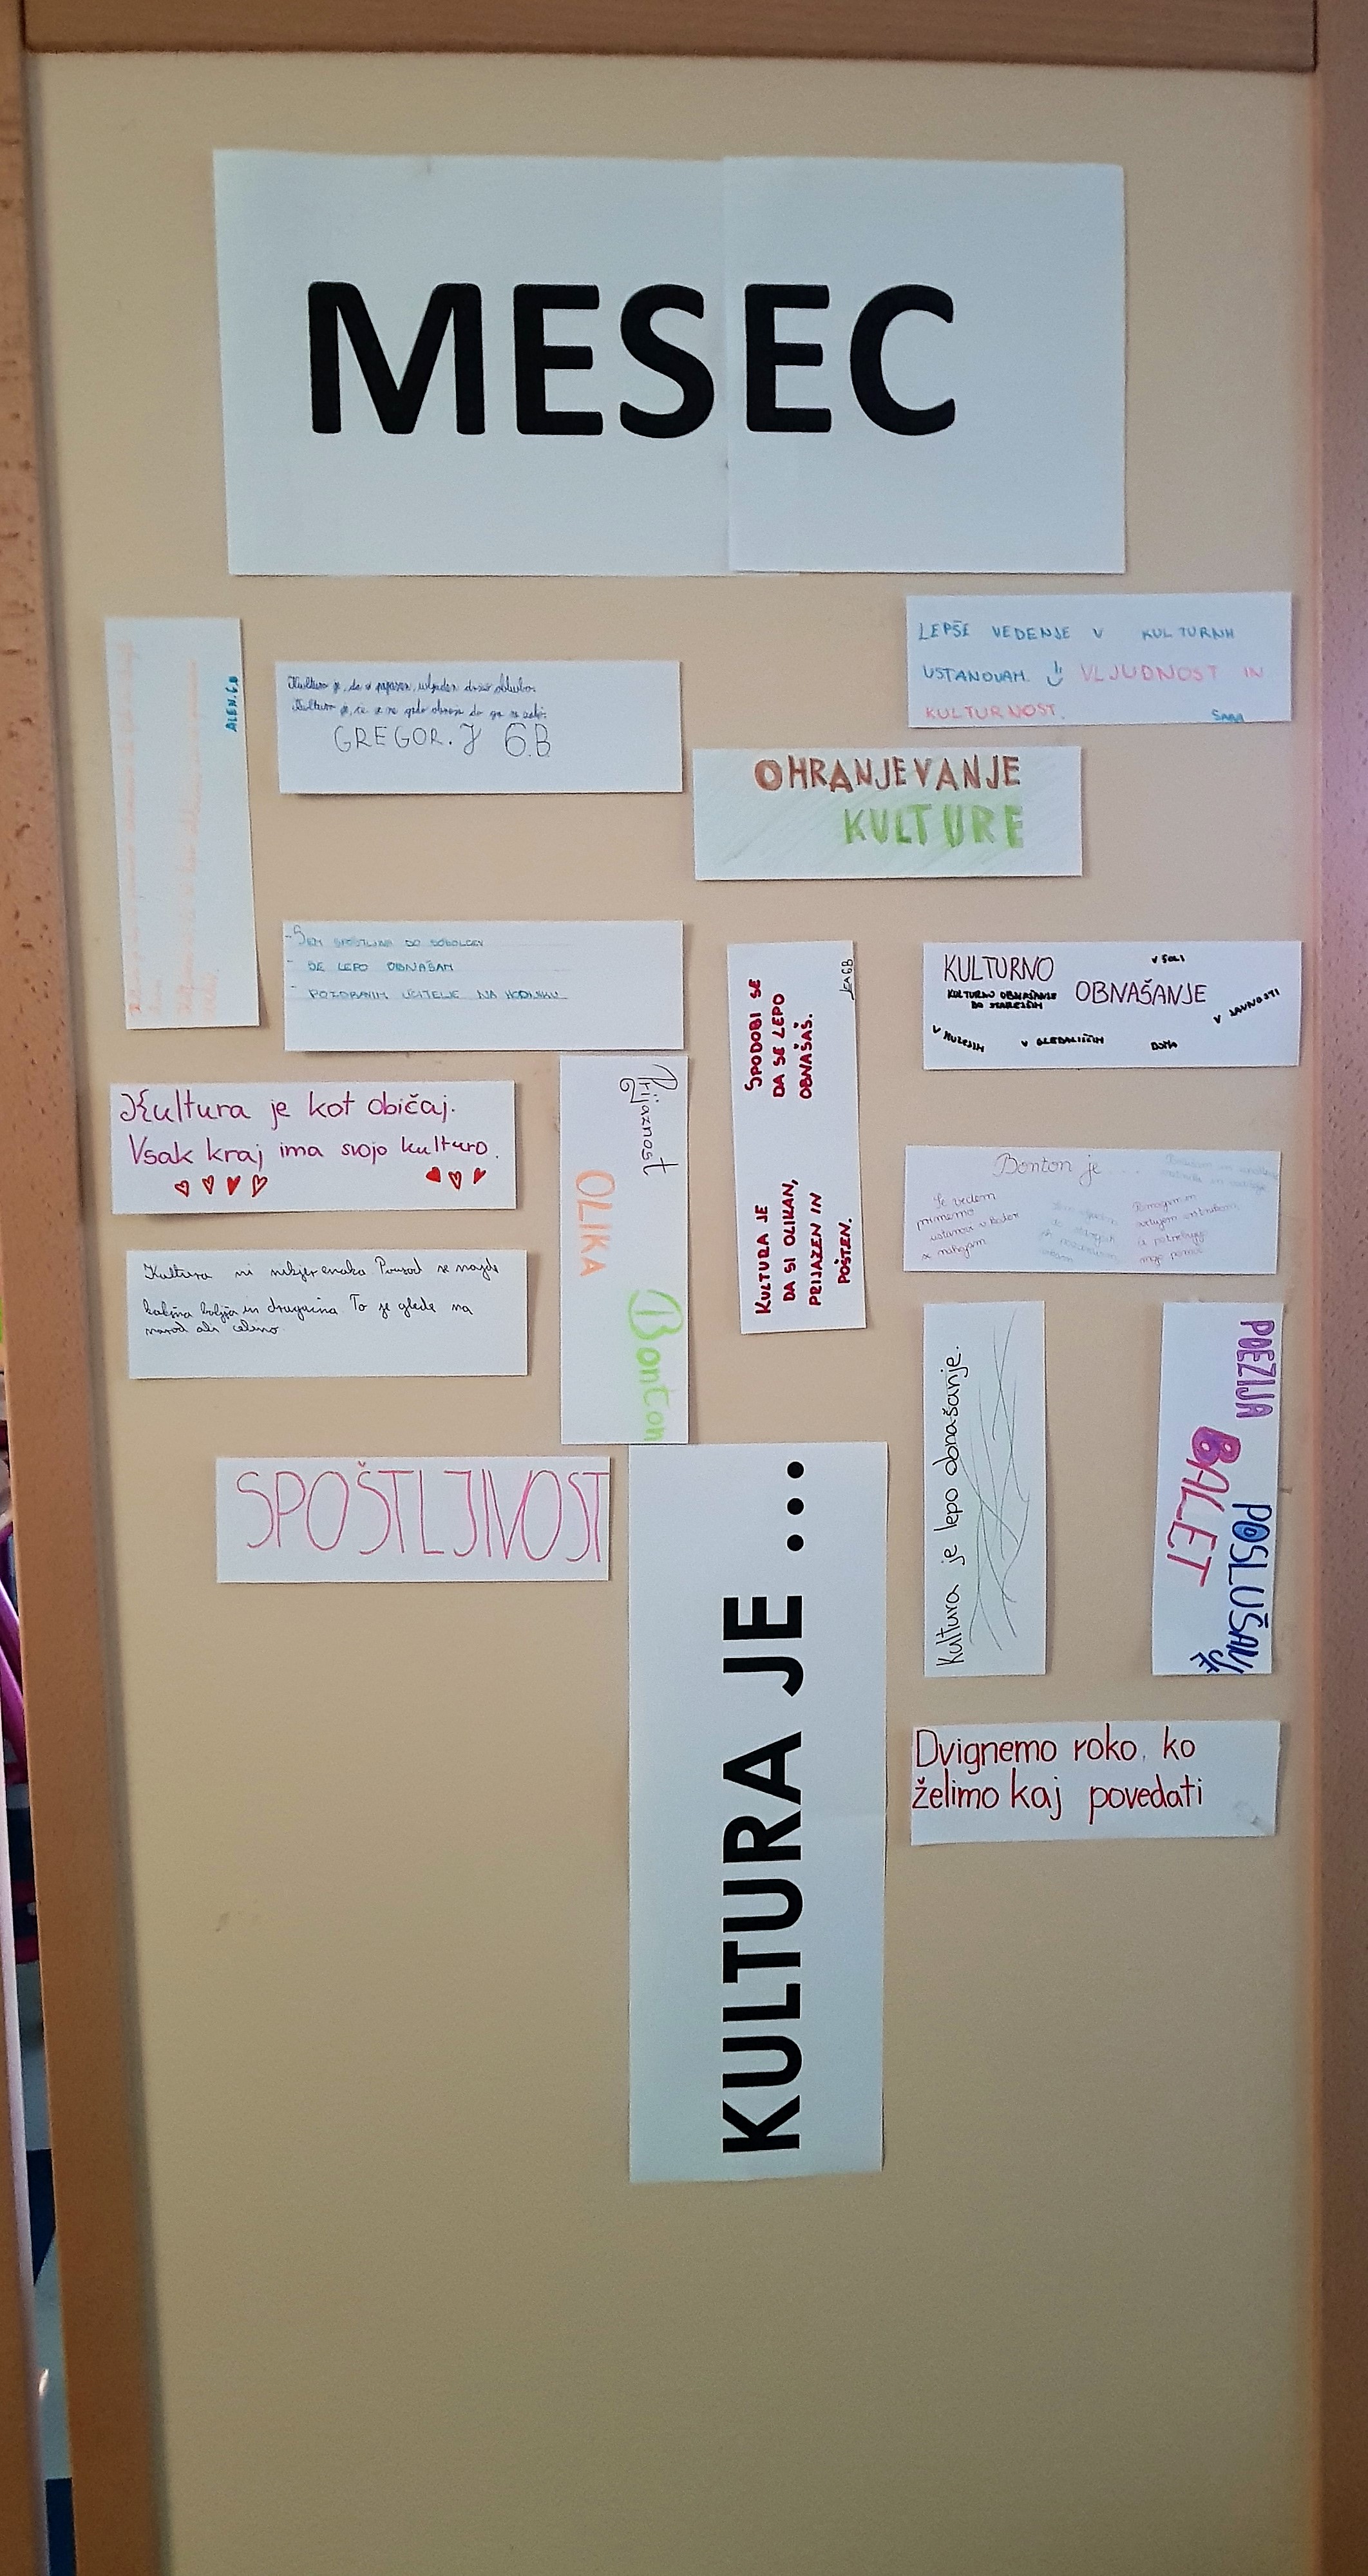 MESEC
LEPŠE VEDENJE V KULTURNH
USTANOVAH. VLJUDNOST IN
KULTURNOST.
SARA
ALEN.6.B
Kultura je, da si prijazen, vljuden
Kultura je, če
GREGOR.J 6.B
OHRANJEVANJE
KULTURE
- SEM SPOŠTLJIV DO SOŠOLCEV
- SE LEPO OBNAŠAM
- POZDRAVIM UČITELJE NA HODNIKU
SPODOBI SE
DA SE LEPO
OBNAŠAŠ.
KULTURA JE
DA SI OLIKAN,
PRIJAZEN IN
POŠTEN.
KULTURNO
OBNAŠANJE
V ŠOLI
KULTURNO OBNAŠANJE
DO STAREJŠIH
V JAVNOSTI
V MUZEJIH
V GLEDALIŠČIH
DOMA
Kultura je kot običaj.
Vsak kraj ima svojo kulturo.
Prijaznost
OLIKA
Bonton
Bonton je
Se vedem
primerno
ustanovi v kateri
se nahajam
Pomagam
starejšim
Kultura ni nikjer enaka Povsod se najde
kakšna boljša in drugačna To je glede na
narod ali celino.
Kultura je lepo obnašanje.
POEZIJA
BALET
POSLUŠANJE
SPOŠTLJIVOST
KULTURA JE ...
Dvignemo roko, ko
želimo kaj povedati